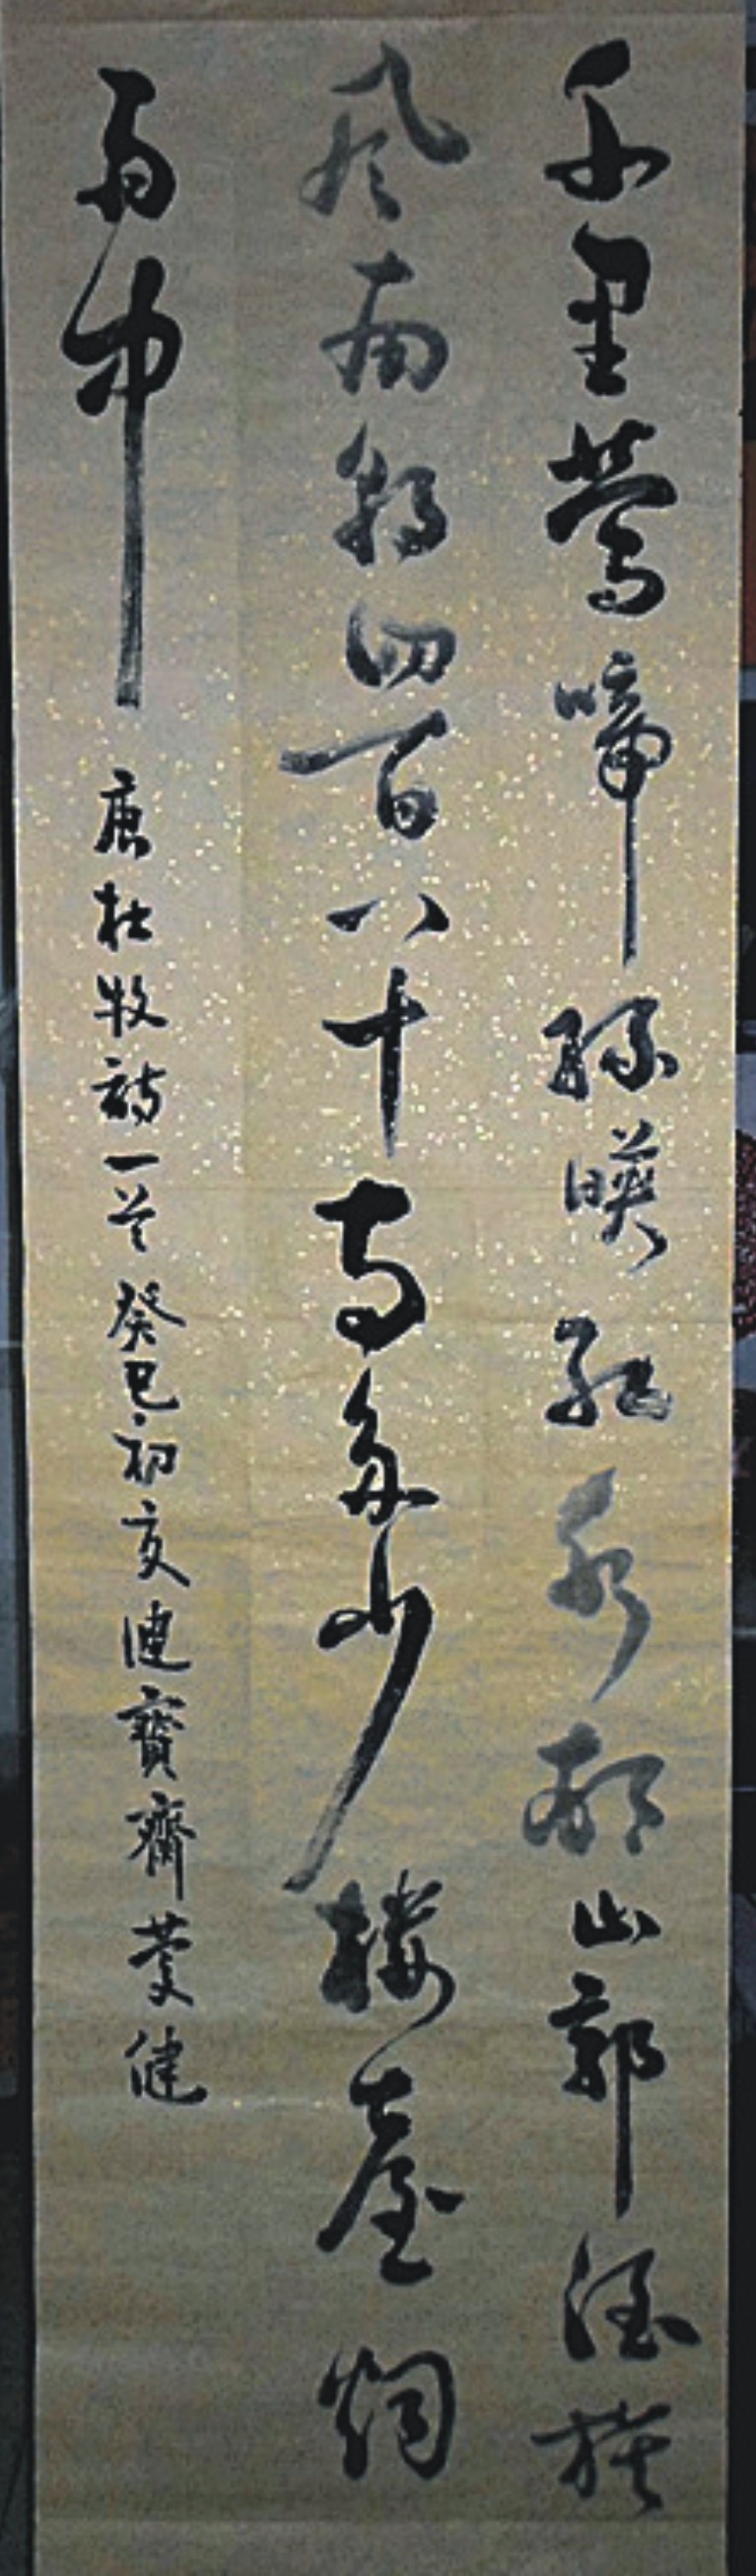 千里鶯啼綠映紅水邨山郭酒旗
風南朝四百八十寺多少樓臺烟
雨中 唐杜牧詩一首 癸巳初夏寶齋健